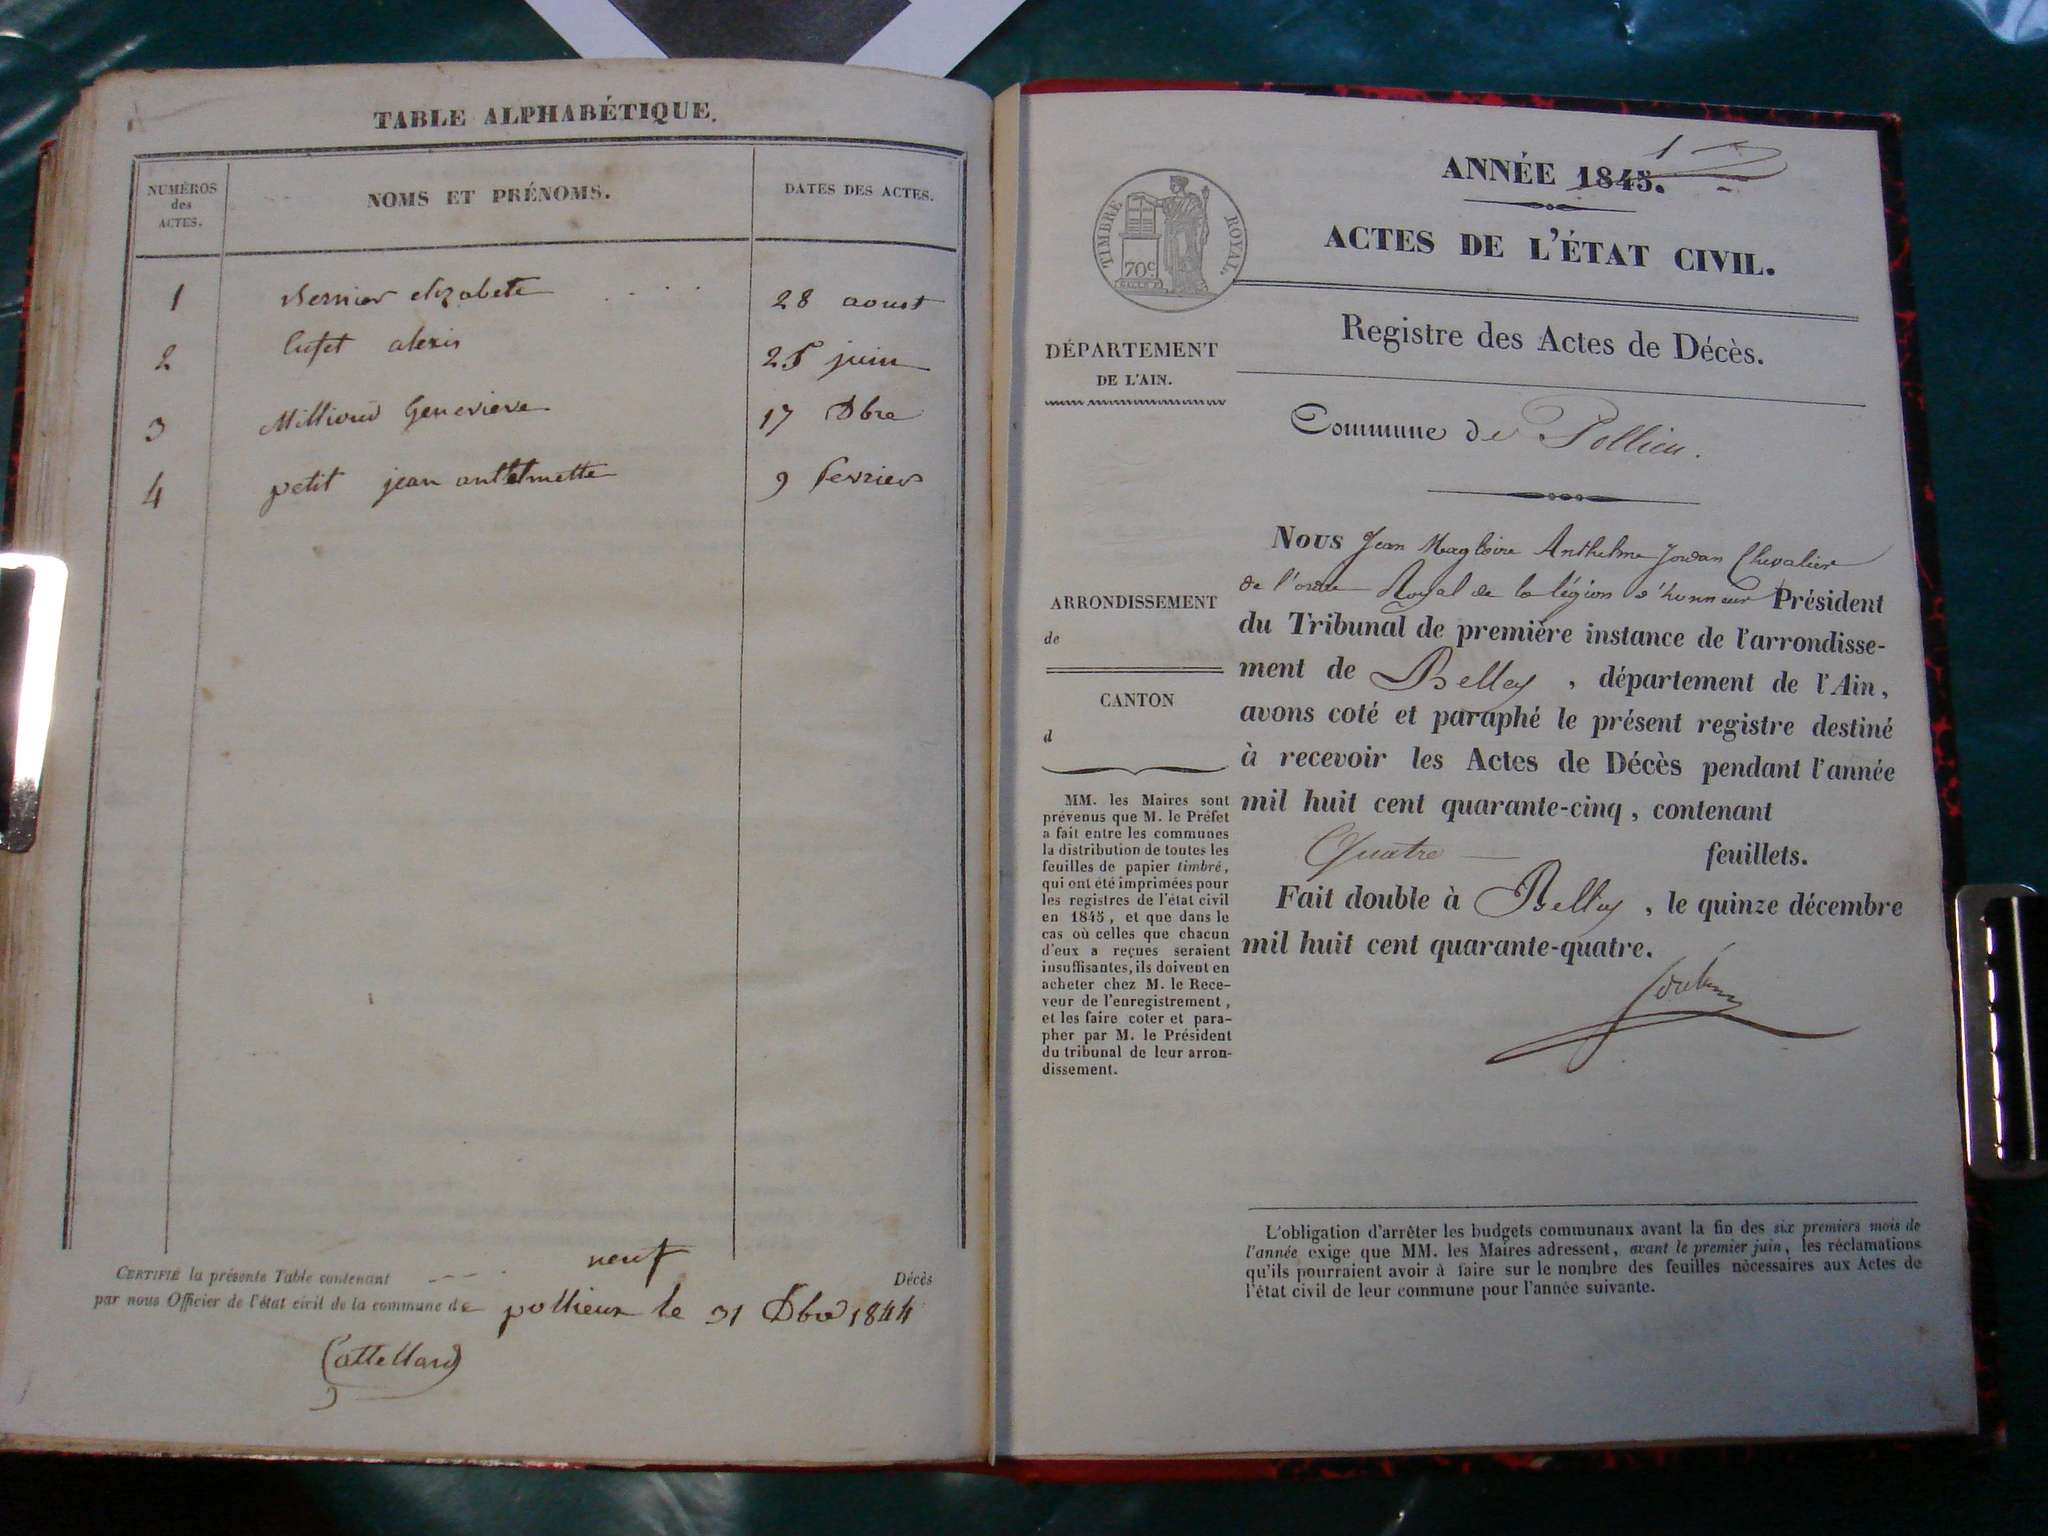 TABLE ALPHABÉTIQUE.
NUMÉROS
des
ACTES.
NOMS ET PRÉNOMS.
DATES DES ACTES.
1 Bernier elizabete . . . . 28 aoust
2 alexis 25 juin
3 Genevieve 17 Dbre
4 petit jean anthelmette 9 fevrier
CERTIFIÉ la présente Table contenant neuf Décès
par nous Officier de l'état civil de la commune de pollieux le 31 Dbre 1844
Cattelland
1
ANNÉE 1845.
ACTES DE L'ÉTAT CIVIL.
TIMBRE ROYAL.
70c
Registre des Actes de Décès.
DÉPARTEMENT
DE L'AIN.
Commune de Pollieu.
ARRONDISSEMENT
de
CANTON
d
MM. les Maires sont
prévenus que M. le Préfet
a fait entre les communes
la distribution de toutes les
feuilles de papier timbré,
qui ont été imprimées pour
les registres de l'état civil
en 1845, et que dans le
cas où celles que chacun
d'eux a reçues seraient
insuffisantes, ils doivent en
acheter chez M. le Rece-
veur de l'enregistrement,
et les faire coter et para-
pher par M. le Président
du tribunal de leur arron-
dissement.
Nous Jean Magloire Anthelme Jordan Chevalier
de l'ordre Royal de la légion d'honneur Président
du Tribunal de première instance de l'arrondisse-
ment de Belley, département de l'Ain,
avons coté et paraphé le présent registre destiné
à recevoir les Actes de Décès pendant l'année
mil huit cent quarante-cinq, contenant
Quatre feuillets.
Fait double à Belley, le quinze décembre
mil huit cent quarante-quatre.
L'obligation d'arrêter les budgets communaux avant la fin des six premiers mois de
l'année exige que MM. les Maires adressent, avant le premier juin, les réclamations
qu'ils pourraient avoir à faire sur le nombre des feuilles nécessaires aux Actes de
l'état civil de leur commune pour l'année suivante.